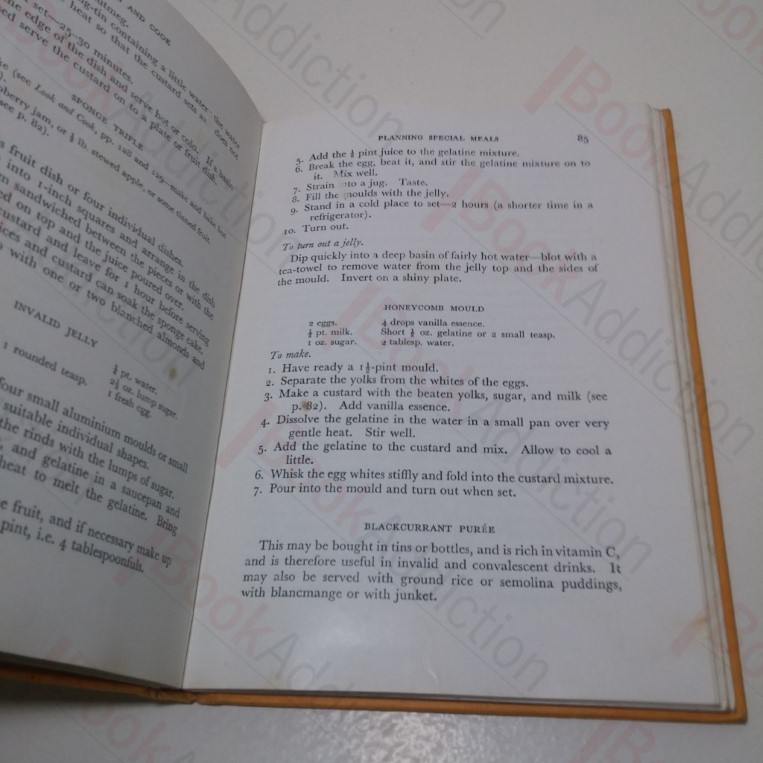 AND COOK
nutmeg.
-tin containing a little water—the water
heat so that the custard sets as does not
set—25–30 minutes.
the edge of the dish and serve hot or cold. If a
serve the custard on to a plate or fruit dish.
SPONGE TRIFLE
(see Look and Cook, pp. 128 and 129—make and bake
berry jam, or ½ lb. stewed apple, or some tinned fruit.
see p. 82).
fruit dish or four individual dishes.
into 1-inch squares and arrange in the dish
sandwiched between the pieces or with the
on top and the juice poured over.
custard and leave for 1 hour before serving
and custard can soak the sponge cake.
with one or two blanched almonds and
INVALID JELLY
1 rounded teasp.
¼ pt. water.
2½ oz. lump sugar.
1 fresh egg.
four small aluminium moulds or small
suitable individual shapes.
the rinds with the lumps of sugar.
and gelatine in a saucepan and
heat to melt the gelatine. Bring
fruit, and if necessary make up
pint, i.e. 4 tablespoonfuls.
PLANNING SPECIAL MEALS 85
5. Add the ¼ pint juice to the gelatine mixture.
6. Break the egg, beat it, and stir the gelatine mixture on to
it. Mix well.
7. Strain into a jug. Taste.
8. Fill the moulds with the jelly.
9. Stand in a cold place to set—2 hours (a shorter time in a
refrigerator).
10. Turn out.
To turn out a jelly.
Dip quickly into a deep basin of fairly hot water—blot with a
tea-towel to remove water from the jelly top and the sides of
the mould. Invert on a shiny plate.
HONEYCOMB MOULD
2 eggs. 4 drops vanilla essence.
½ pt. milk. Short ½ oz. gelatine or 2 small teasp.
1 oz. sugar. 2 tablesp. water.
To make.
1. Have ready a 1½-pint mould.
2. Separate the yolks from the whites of the eggs.
3. Make a custard with the beaten yolks, sugar, and milk (see
p. 82). Add vanilla essence.
4. Dissolve the gelatine in the water in a small pan over very
gentle heat. Stir well.
5. Add the gelatine to the custard and mix. Allow to cool a
little.
6. Whisk the egg whites stiffly and fold into the custard mixture.
7. Pour into the mould and turn out when set.
BLACKCURRANT PURÉE
This may be bought in tins or bottles, and is rich in vitamin C,
and is therefore useful in invalid and convalescent drinks. It
may also be served with ground rice or semolina puddings,
with blancmange or with junket.
BookAddiction